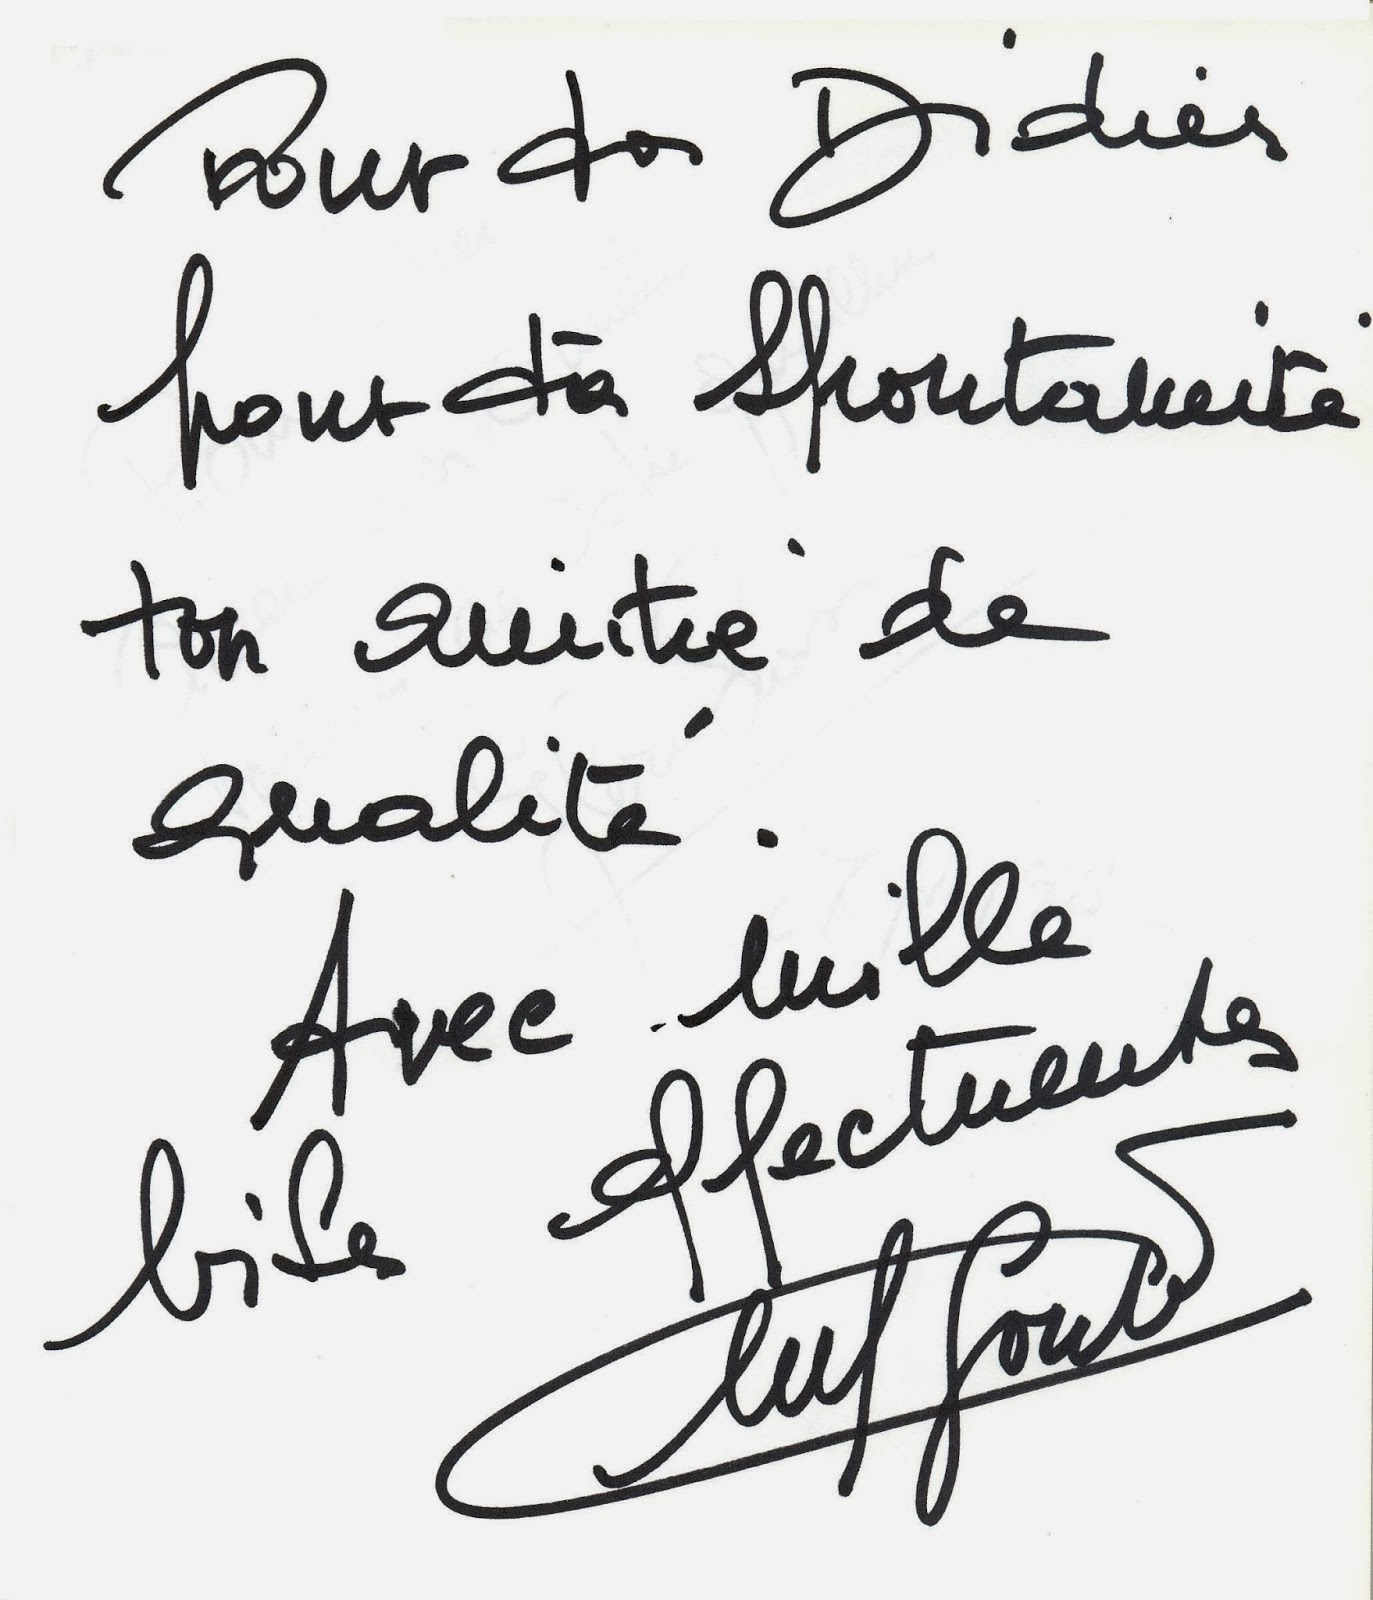 Pour toi Didier
pour ta spontanéité
ton amitié de
qualité.
Avec mille
bises affectueuses